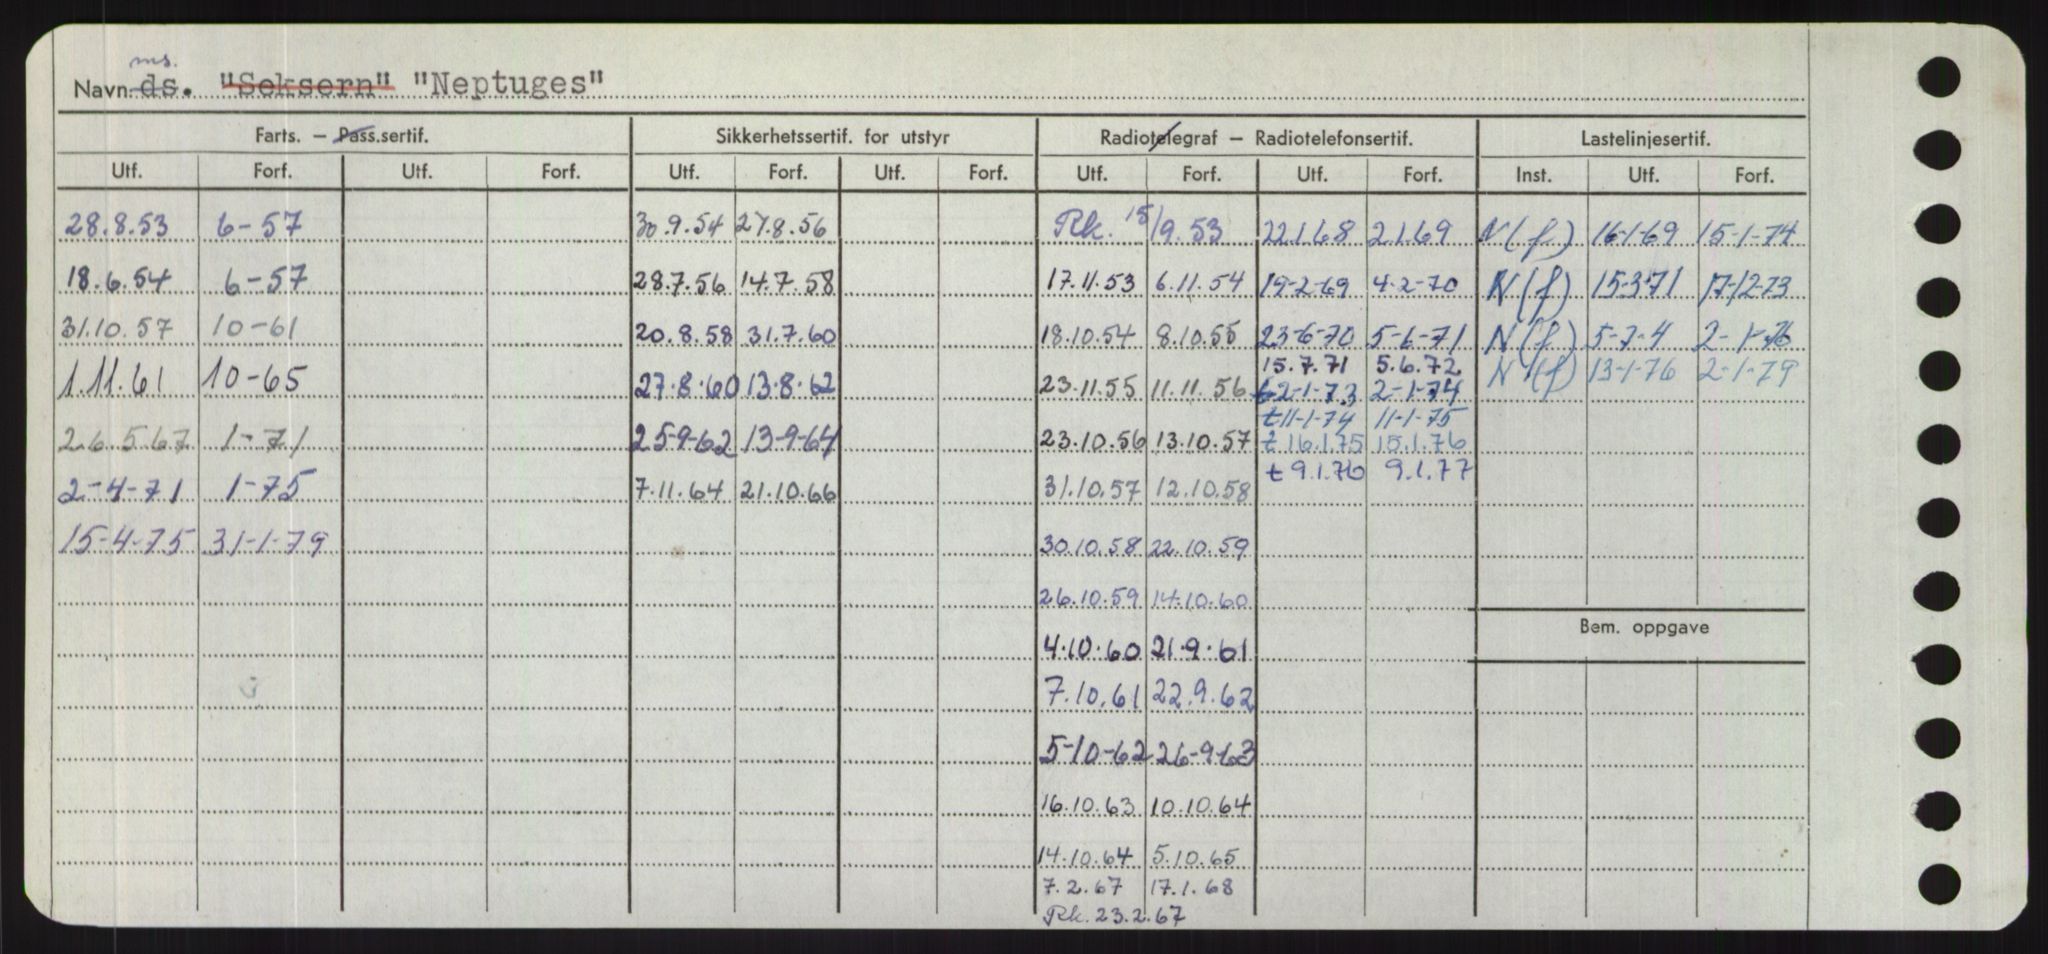 ms.
Navn ds. "Seksern" "Neptuges"
Farts. — Pass.sertif. Sikkerhetssertif. for utstyr Radiotelegraf — Radiotelefonsertif. Lastelinjesertif.
Utf. Forf. Utf. Forf. Utf. Forf. Utf. Forf. Utf. Forf. Utf. Forf. Inst. Utf. Forf.
28.8.53 6-57 30.9.54 27.8.56 Rk. 15/9.53 22.1.68 2.1.69 N(f) 16-1-69 15-1-74
18.6.54 6-57 28.7.56 14.7.58 17.11.53 6.11.54 19-2-69 4-2-70 N(f) 15-3-71 17-12-73
31.10.57 10-61 20.8.58 31.7.60 18.10.54 8.10.55 23-6-70 5-6-71 N(f) 5-7-4 2-1-76
15.7.71 5.6.72 N(f) 13-1-76 2-1-79
1.11.61 10-65 27.8.60 13.8.62 23.11.55 11.11.56 t2-1-73 2-1-74
t11-1-74 11-1-75
26.5.67 1-71 25-9-62 13-9-64 23.10.56 13.10.57 t 16.1.75 15.1.76
t 9.1.76 9.1.77
2-4-71 1-75 7.11.64 21.10.66 31.10.57 12.10.58
15-4-75 31-1-79 30.10.58 22.10.59
26.10.59 14.10.60
Bem. oppgave
4.10.60 21.9.61
7.10.61 22.9.62
5-10-62 26-9-63
16.10.63 10.10.64
14.10.64 5.10.65
7.2.67 17.1.68
Rk. 23.2.67